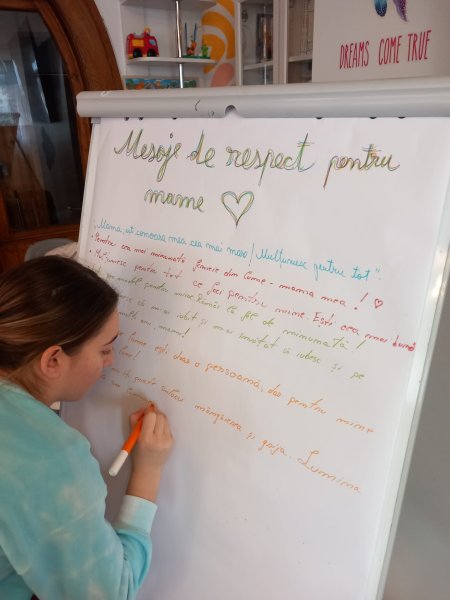 DREAMS COME TRUE
Mesaje de respect pentru
mame
"Mama, ești comoara mea cea mai mare! Mulțumesc pentru tot".
• Pentru cea mai minunată femeie din lume - mama mea!
• Mulțumesc pentru tot ce faci pentru mine. Ești cea mai bună
pentru mine. Rămâi la fel de minunată!
că m-ai iubit și m-ai învățat să iubesc și pe
mulți ani, mami!
lume ești doar o persoană, dar pentru mine
lume!
nu-ți poate înlocui mângâierea și grija. Lumina